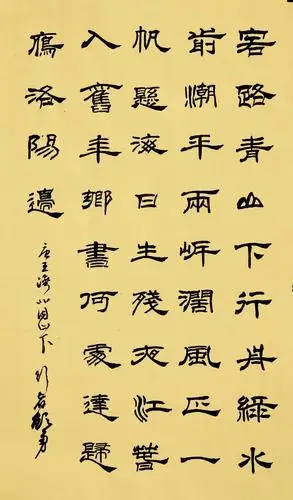 客路青山下行舟綠水
前潮平兩岸濶風正一
帆懸海日生殘夜江春
入舊年鄉書何處達歸
鴈洛陽邊
唐王湾北固山下